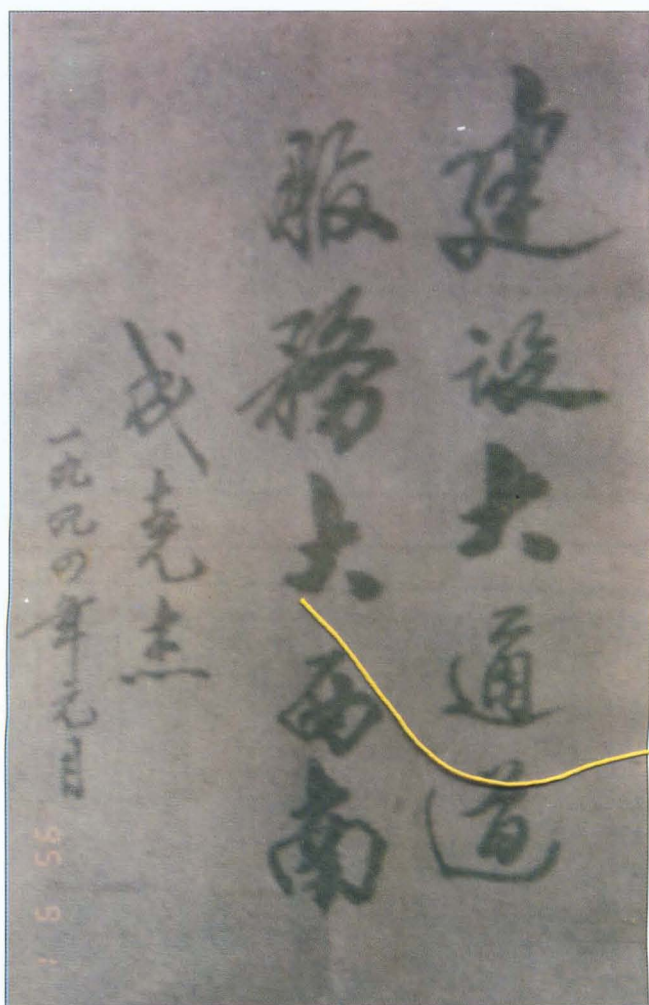 建设大通道
服務大西南
成克杰
一九九四年元月
95 9 1